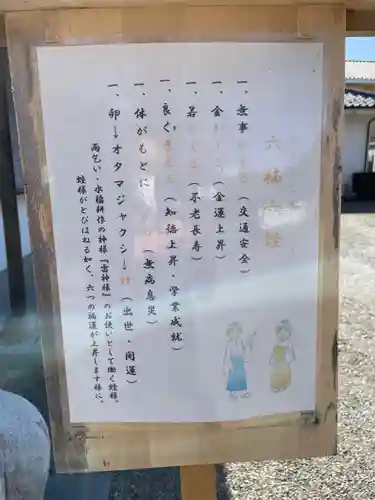 六福六蛙
一、無事 (交通安全)
一、金 (金運上昇)
一、若 (不老長寿)
一、良く (知徳上昇・学業成就)
一、体がもとに (無病息災)
一、卵→オタマジャクシ→蛙 (出世・開運)
雨乞い・水稲耕作の神様『雷神様』のお使いとして働く蛙様。
蛙様がとびはねる如く、六つの福運が上昇します様に。